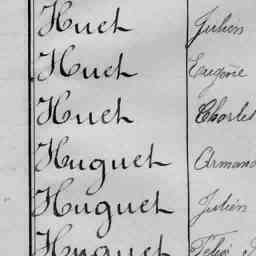 Huet Julien
Huet Eugène
Huet Charles
Huguet Armand
Huguet Julien
Huguet Félix